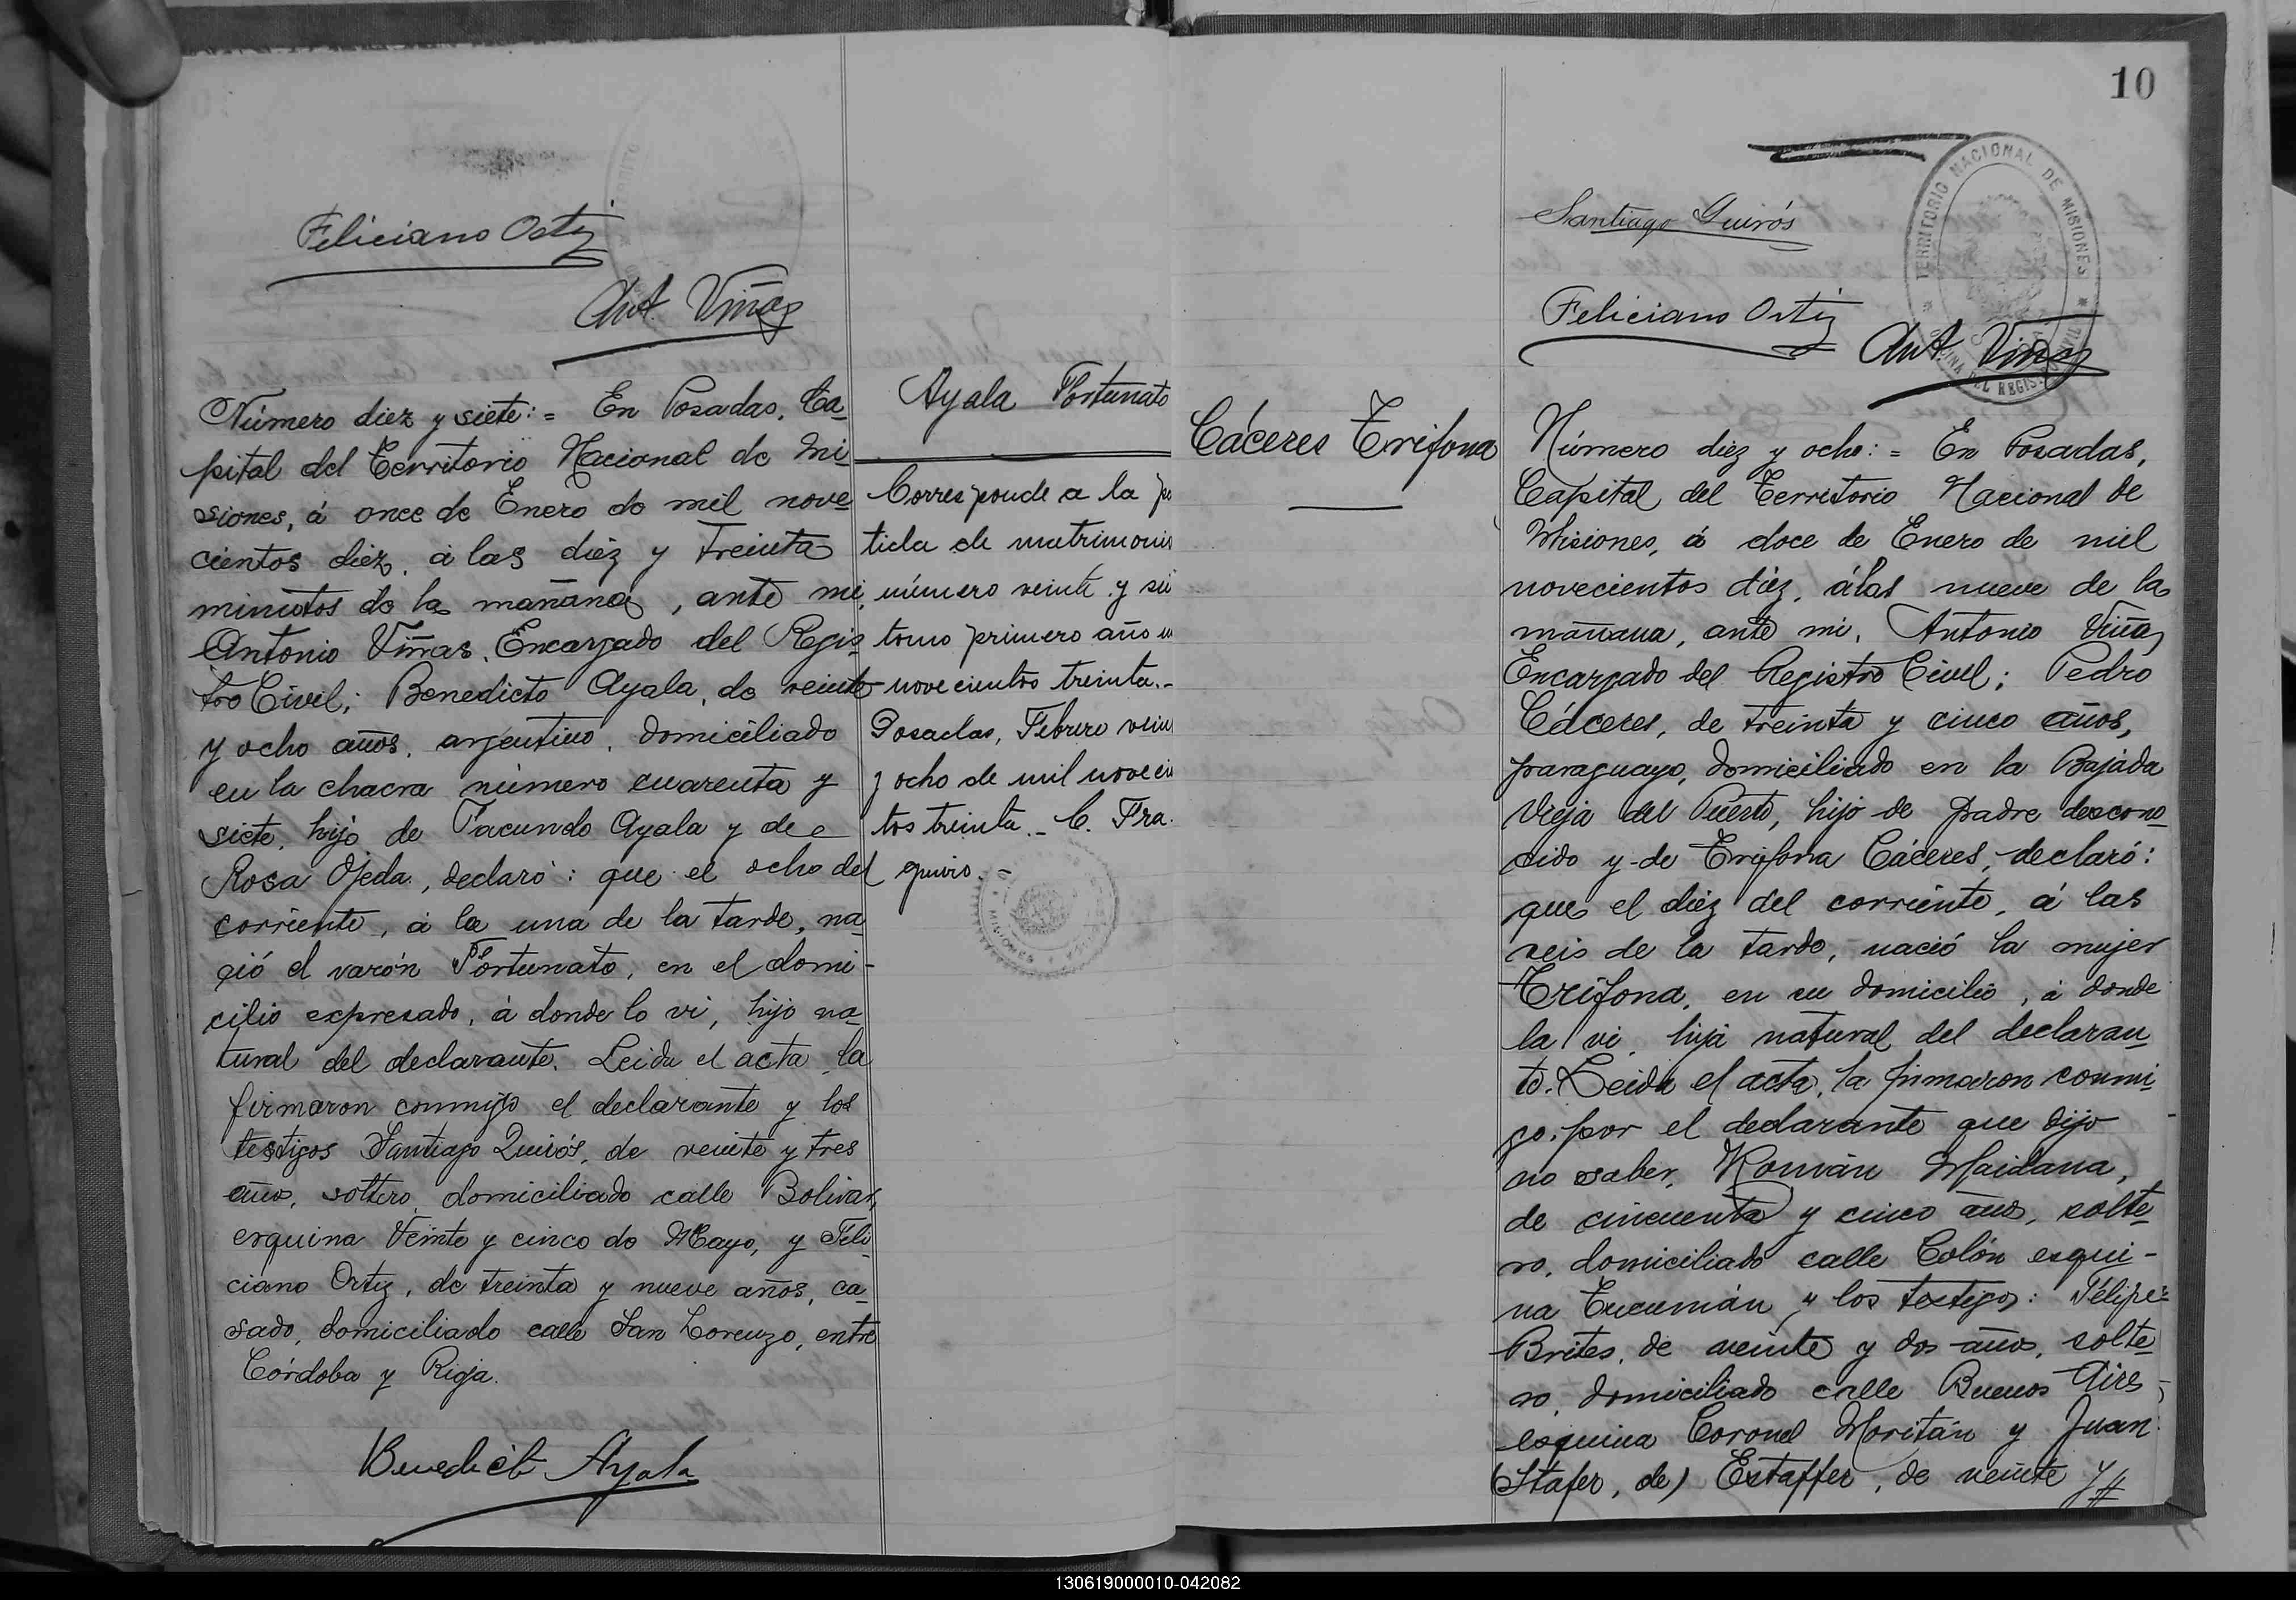 Feliciano Ortiz
Ant. Viñas
Número diez y siete: = En Posadas, Ca-
pital del Territorio Nacional de Mi-
siones, á once de Enero de mil nove-
cientos diez, á las diez y treinta
minutos de la mañana, ante mi,
Antonio Viñas, Encargado del Regis-
tro Civil; Benedicto Ayala, de veinte
y ocho años, argentino, domiciliado
en la chacra número cuarenta y
siete, hijo de Facundo Ayala y de
Rosa Ojeda, declaró: que el ocho del
corriente, á la una de la tarde, na-
ció el varón Fortunato, en el domi-
cilio expresado, á donde lo vi, hijo na-
tural del declarante. Leida el acta, la
firmaron conmigo el declarante y los
testigos Santiago Quirós, de veinte y tres
años, soltero, domiciliado calle Bolivar,
esquina Veinte y cinco de Mayo, y Feli-
ciano Ortiz, de treinta y nueve años, ca-
sado, domiciliado calle San Lorenzo, entre
Córdoba y Rioja.
Benedicto Ayala
Ayala Fortunato
Corresponde a la
tida de matrimonio
número veinte y
tomo primero año
novecientos treinta.-
Posadas, Febrero
y ocho de mil
tos treinta.- C. Fra.
guiro.-
Cáceres Trifona
10
TERRITORIO NACIONAL DE MISIONES
Santiago Quirós
Feliciano Ortiz
Ant. Viñas
Número diez y ocho: = En Posadas,
Capital del Territorio Nacional de
Misiones, á doce de Enero de mil
novecientos diez, á las nueve de la
mañana, ante mi, Antonio Viñas,
Encargado del Registro Civil; Pedro
Cáceres, de treinta y cinco años,
paraguayo, domiciliado en la Bajada
Vieja del Puerto, hijo de padre descono-
cido y de Trifona Cáceres, declaró:
que el diez del corriente, á las
seis de la tarde, nació la mujer
Trifona, en su domicilio, á donde
la vi, hija natural del declaran-
te. Leida el acta, la firmaron conmi
go, por el declarante que dijo
no saber, Román Maidana,
de cincuenta y cinco años, solte-
ro, domiciliado calle Colón esqui-
na Tucumán y los testigos: Felipe
Brites, de veinte y dos años, solte-
ro, domiciliado calle Buenos Aires
esquina Coronel Moritán y Juan
(Stafer, de) Estaffer, de veinte y
130619000010-042082